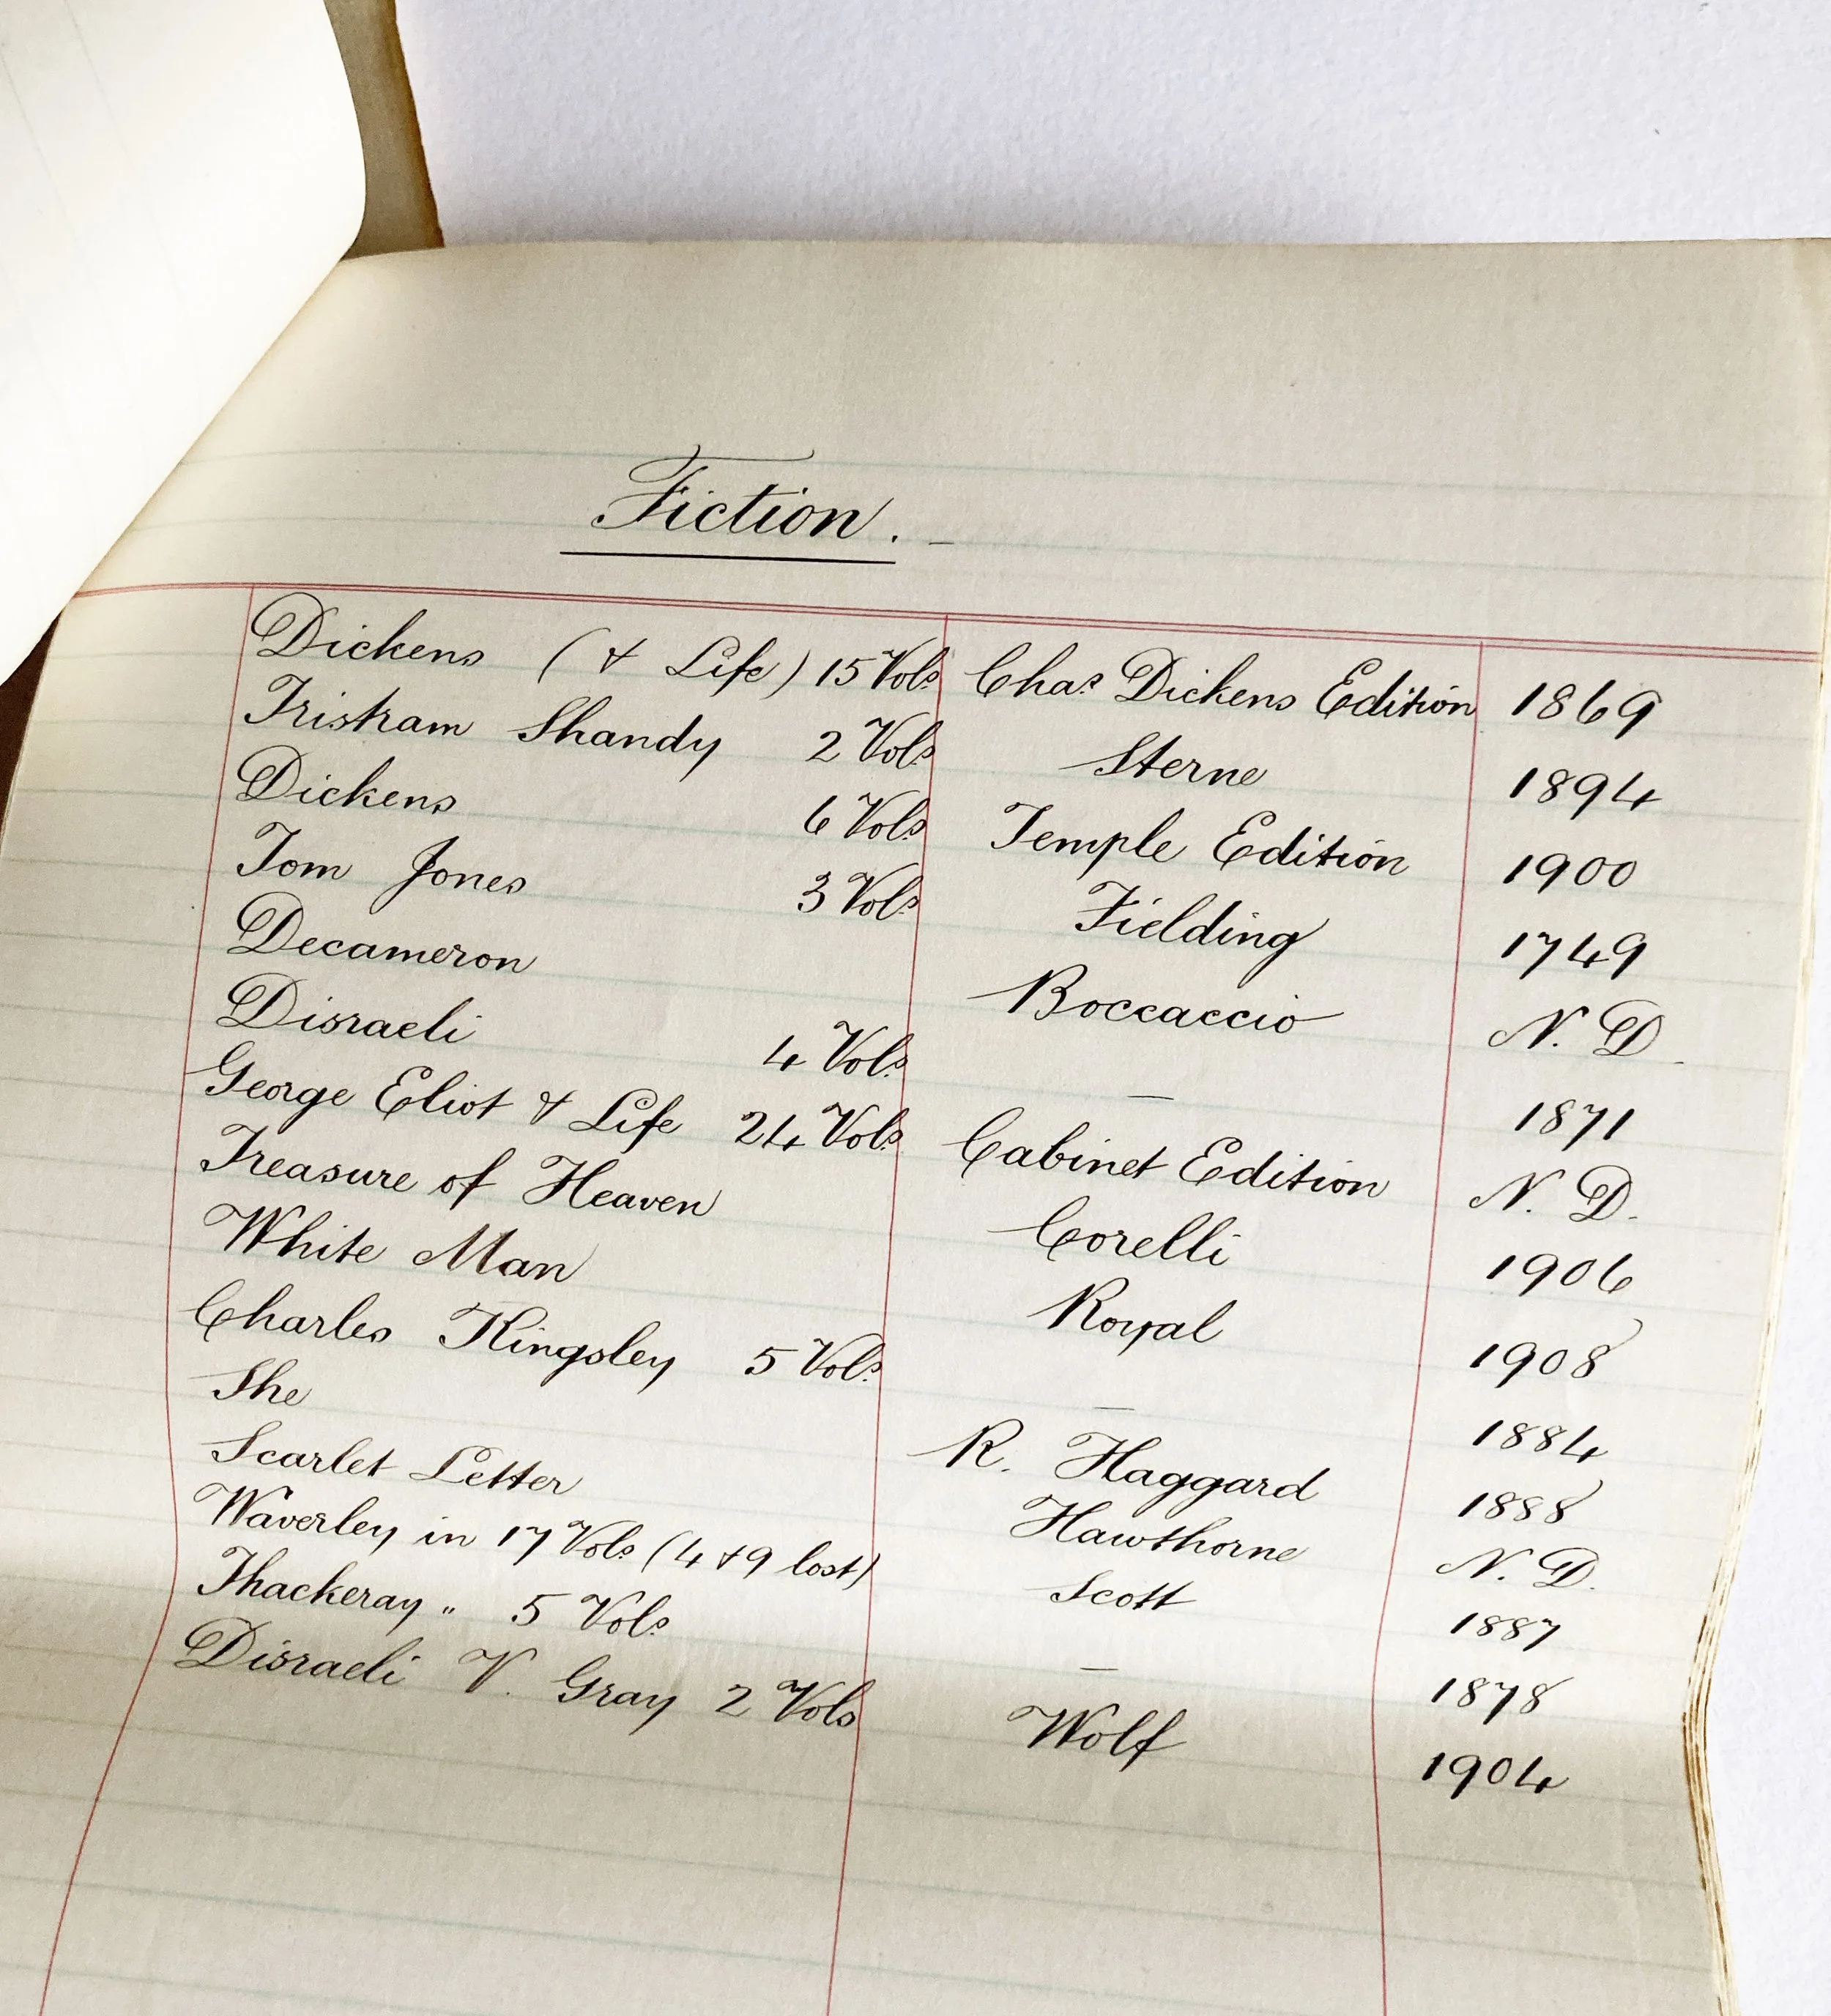 Fiction. -
Dickens (& Life) 15 Vols Chas Dickens Edition 1869
Tristram Shandy 2 Vols Sterne 1894
Dickens 6 Vols Temple Edition 1900
Tom Jones 3 Vols Fielding 1749
Decameron Boccaccio N. D.
Disraeli 4 Vols — 1871
George Eliot & Life 24 Vols Cabinet Edition N. D.
Treasure of Heaven Corelli 1906
White Man Royal 1908
Charles Kingsley 5 Vols — 1884
She R. Haggard 1888
Scarlet Letter Hawthorne N. D.
Waverley in 17 Vols (4 & 9 lost) Scott 1887
Thackeray " 5 Vols — 1878
Disraeli V. Gray 2 Vols Wolf 1904